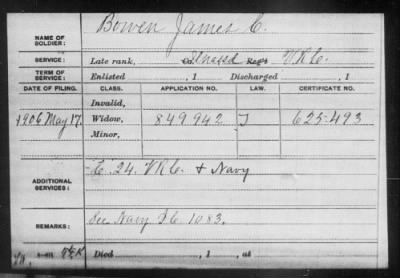 NAME OF SOLDIER: Bowen James C.
SERVICE: Late rank, Co. Unassd Reg't V.R.C.
TERM OF SERVICE: Enlisted , 1 Discharged , 1
DATE OF FILING. CLASS. APPLICATION NO. LAW. CERTIFICATE NO.
Invalid,
1906 May 17. Widow, 849942 J 625-493
Minor,
ADDITIONAL SERVICES: C. 24. V.R.C. + Navy
REMARKS: See Navy 1083.
Died , 1 , at